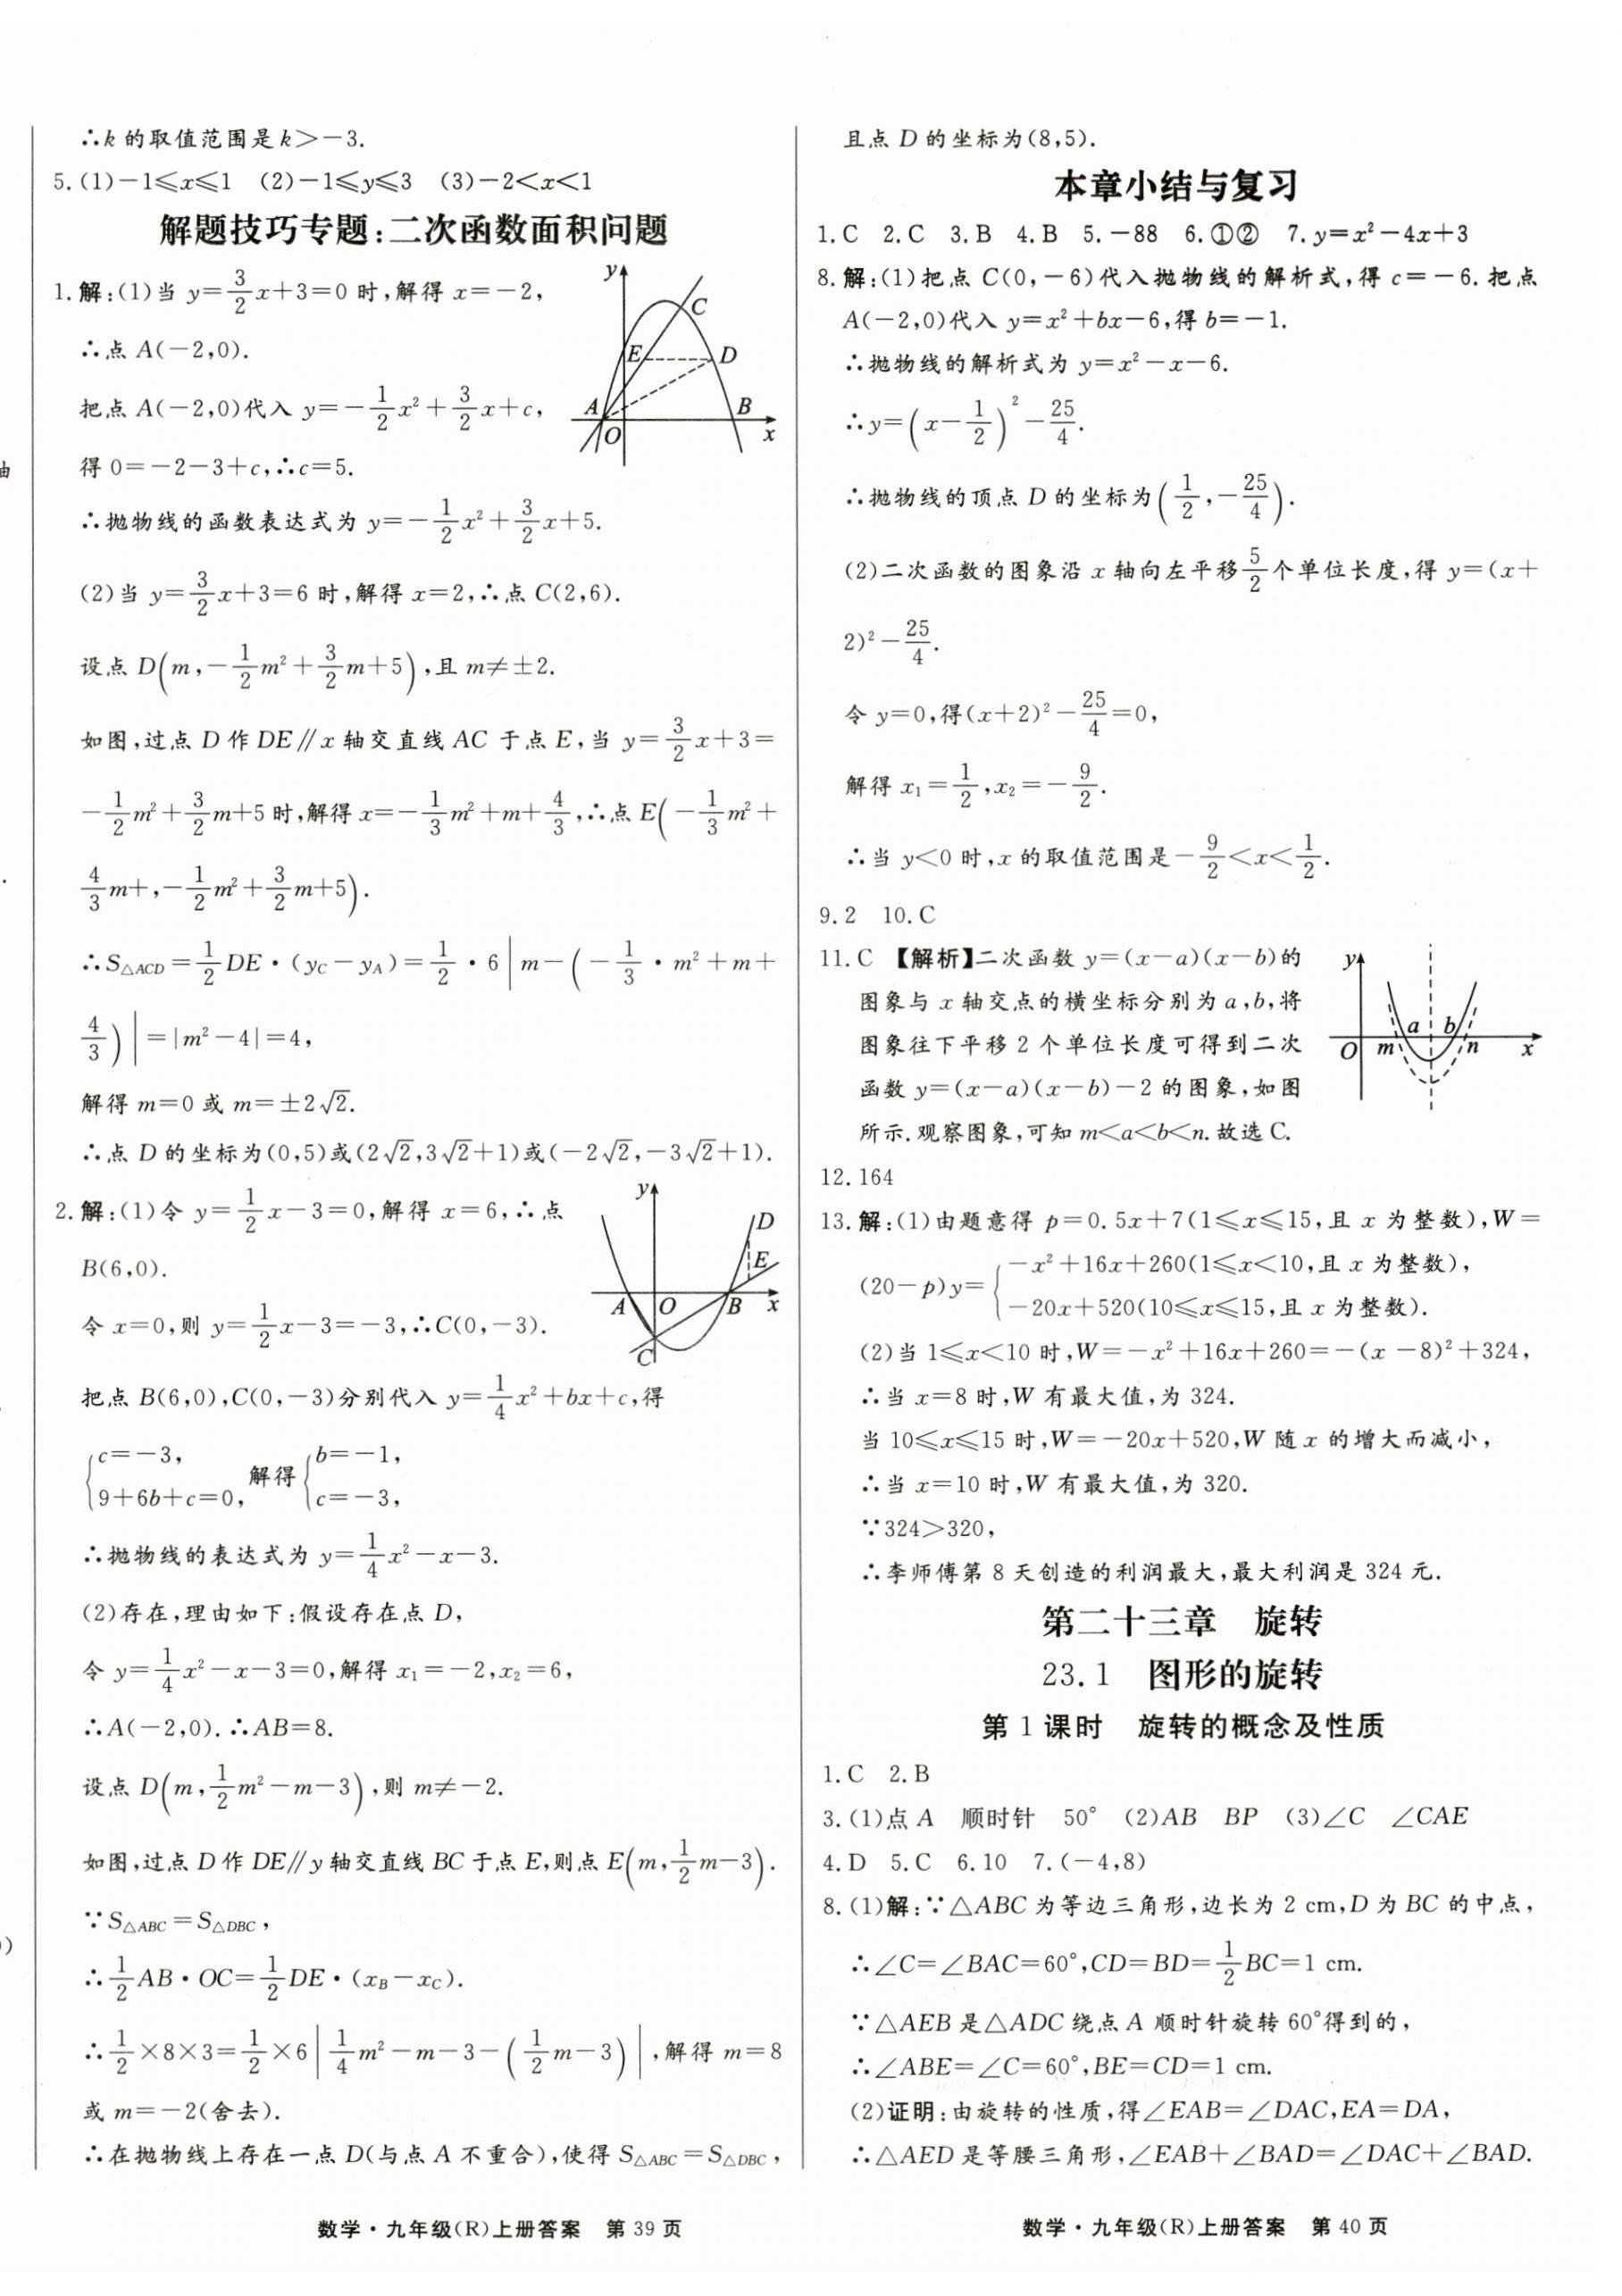 ∴k 的取值范围是 k>−3.
5.(1)−1⩽x⩽1　(2)−1⩽y⩽3　(3)−2<x<1
解题技巧专题:二次函数面积问题
1.解:(1)当 y=3/2x+3=0 时,解得 x=−2,
∴点 A(−2,0).
把点 A(−2,0)代入 y=−1/2x²+3/2x+c,
得 0=−2−3+c,∴c=5.
y
C
E
D
A
B
O
x
∴抛物线的函数表达式为 y=−1/2x²+3/2x+5.
(2)当 y=3/2x+3=6 时,解得 x=2,∴点 C(2,6).
设点 D(m,−1/2m²+3/2m+5),且 m≠±2.
如图,过点 D 作 DE∥x 轴交直线 AC 于点 E,当 y=3/2x+3=
−1/2m²+3/2m+5 时,解得 x=−1/3m²+m+4/3,∴点 E(−1/3m²+
4/3m+,−1/2m²+3/2m+5).
∴S△ACD=1/2DE·(yC−yA)=1/2·6|m−(−1/3·m²+m+
4/3)|=|m²−4|=4,
解得 m=0 或 m=±2√2.
∴点 D 的坐标为(0,5)或(2√2,3√2+1)或(−2√2,−3√2+1).
2.解:(1)令 y=1/2x−3=0,解得 x=6,∴点
B(6,0).
令 x=0,则 y=1/2x−3=−3,∴C(0,−3).
y
D
E
A
O
B
x
C
把点 B(6,0),C(0,−3)分别代入 y=1/4x²+bx+c,得
{c=−3, 9+6b+c=0, 解得{b=−1, c=−3,
∴抛物线的表达式为 y=1/4x²−x−3.
(2)存在,理由如下:假设存在点 D,
令 y=1/4x²−x−3=0,解得 x₁=−2,x₂=6,
∴A(−2,0).∴AB=8.
设点 D(m,1/2m²−m−3),则 m≠−2.
如图,过点 D 作 DE∥y 轴交直线 BC 于点 E,则点 E(m,1/2m−3).
∵S△ABC=S△DBC,
∴1/2AB·OC=1/2DE·(xB−xC).
∴1/2×8×3=1/2×6|1/4m²−m−3−(1/2m−3)|,解得 m=8
或 m=−2(舍去).
∴在抛物线上存在一点 D(与点 A 不重合),使得 S△ABC=S△DBC,
数学·九年级(R)上册答案　第 39 页
且点 D 的坐标为(8,5).
本章小结与复习
1.C　2.C　3.B　4.B　5.−88　6.①②　7.y=x²−4x+3
8.解:(1)把点 C(0,−6)代入抛物线的解析式,得 c=−6.把点
A(−2,0)代入 y=x²+bx−6,得 b=−1.
∴抛物线的解析式为 y=x²−x−6.
∴y=(x−1/2)²−25/4.
∴抛物线的顶点 D 的坐标为(1/2,−25/4).
(2)二次函数的图象沿 x 轴向左平移5/2个单位长度,得 y=(x+
2)²−25/4.
令 y=0,得(x+2)²−25/4=0,
解得 x₁=1/2,x₂=−9/2.
∴当 y<0 时,x 的取值范围是−9/2<x<1/2.
9.2　10.C
11.C　【解析】二次函数 y=(x−a)(x−b)的
图象与 x 轴交点的横坐标分别为 a,b,将
图象往下平移 2 个单位长度可得到二次
函数 y=(x−a)(x−b)−2 的图象,如图
所示.观察图象,可知 m<a<b<n.故选 C.
y
a
b
O
m
n
x
12.164
13.解:(1)由题意得 p=0.5x+7(1⩽x⩽15,且 x 为整数),W=
(20−p)y={−x²+16x+260(1⩽x<10,且 x 为整数),
−20x+520(10⩽x⩽15,且 x 为整数).
(2)当 1⩽x<10 时,W=−x²+16x+260=−(x−8)²+324,
∴当 x=8 时,W 有最大值,为 324.
当 10⩽x⩽15 时,W=−20x+520,W 随 x 的增大而减小,
∴当 x=10 时,W 有最大值,为 320.
∵324>320,
∴李师傅第 8 天创造的利润最大,最大利润是 324 元.
第二十三章　旋转
23.1　图形的旋转
第 1 课时　旋转的概念及性质
1.C　2.B
3.(1)点 A　顺时针　50°　(2)AB　BP　(3)∠C　∠CAE
4.D　5.C　6.10　7.(−4,8)
8.(1)解:∵△ABC 为等边三角形,边长为 2 cm,D 为 BC 的中点,
∴∠C=∠BAC=60°,CD=BD=1/2BC=1 cm.
∵△AEB 是△ADC 绕点 A 顺时针旋转 60°得到的,
∴∠ABE=∠C=60°,BE=CD=1 cm.
(2)证明:由旋转的性质,得∠EAB=∠DAC,EA=DA,
∴△AED 是等腰三角形,∠EAB+∠BAD=∠DAC+∠BAD.
数学·九年级(R)上册答案　第 40 页